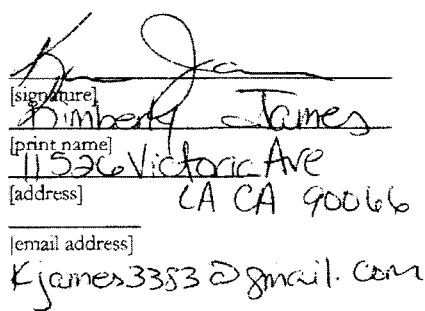 [signature]
Kimberly James
[print name]
11526 Victoria Ave
[address]
LA CA 90066
[email address]
Kjames3383@gmail.com